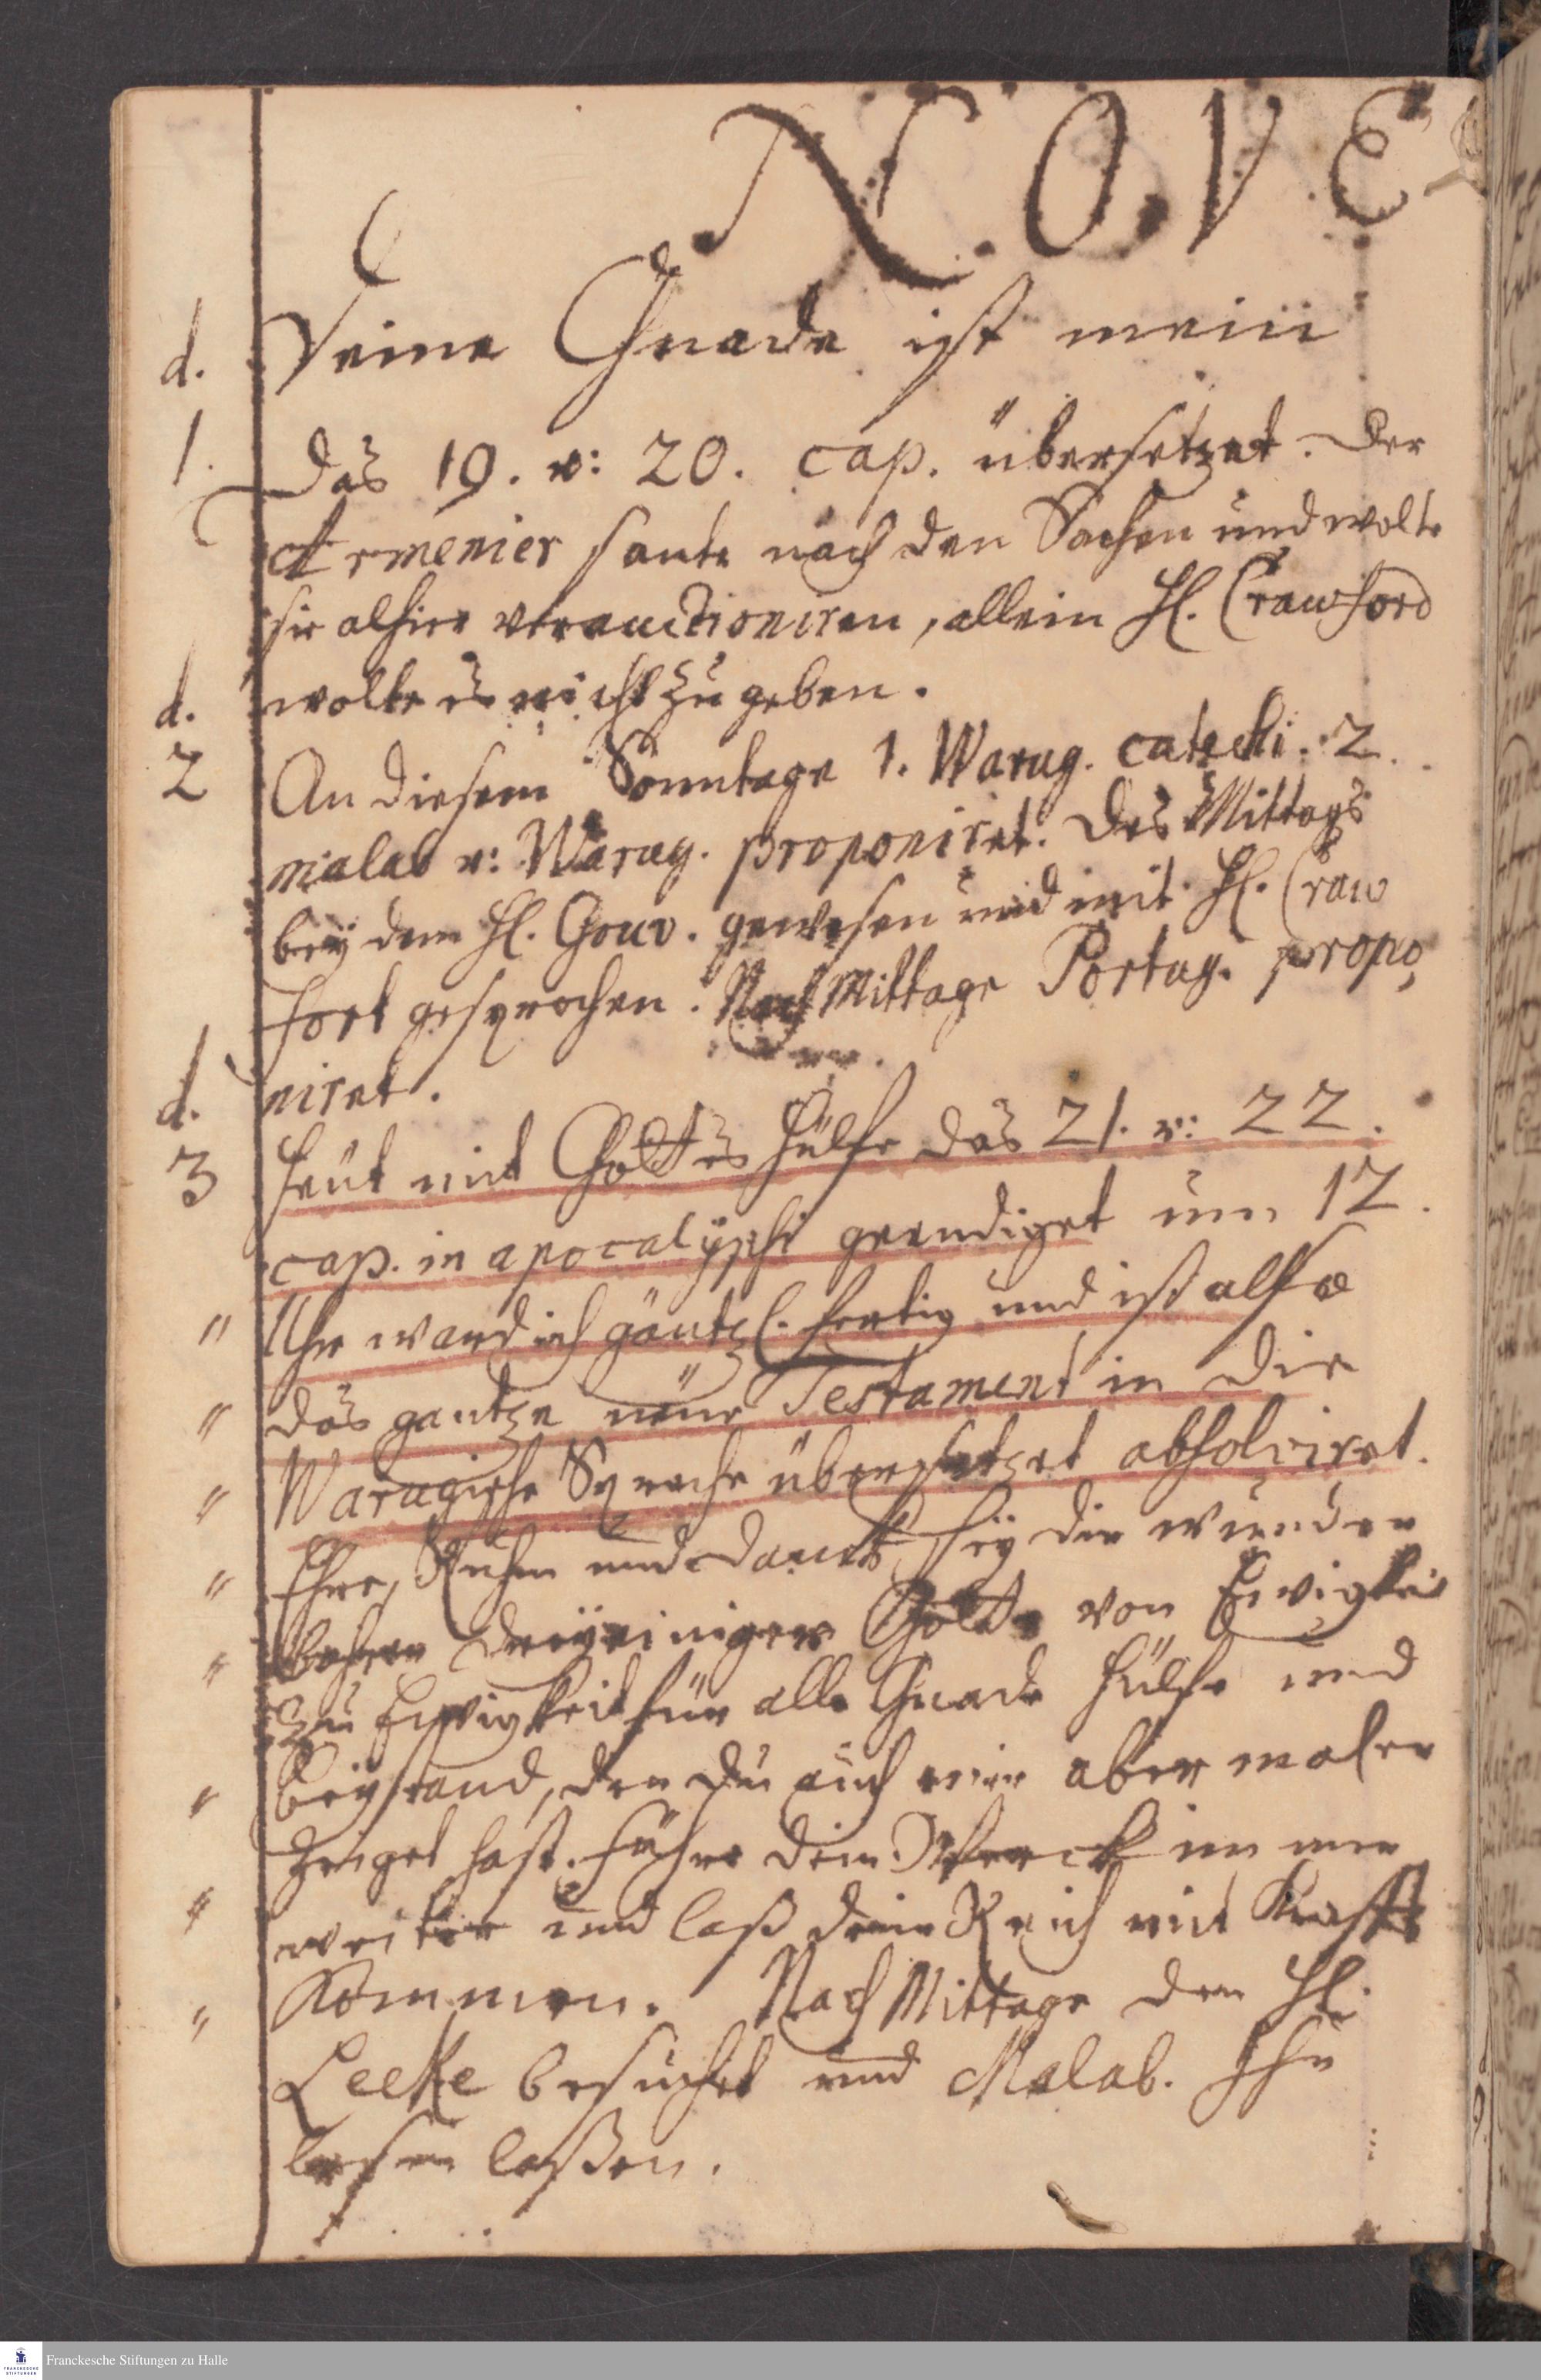 N.O.V.E
d. Deine Gnade ist mein
1. Das 19. u: 20. cap. übersetzet. Der
Armenier sante nach den Sachen und wolte
sie alhier verauctioniren, allein H. Crawford
wolte es nicht zu geben.
d.
2 An diesem Sonntage 1. Warug. catechi. 2.
malab u: Warug. proponiret. Des Mittags
bey dem H. Gouv. gewesen und mit H. Craw
fort gesprochen. Nach Mittage Portug. propo,
niret.
d.
3 Heut mit Gottes Hülfe das 21. u: 22.
cap. in apocalypsi geendiget um 12.
" Uhr ward ich gäntzl. fertig und ist also
" das gantze neue Testament in die
" Warugische Sprache übersetzet absolviret.
" Ehre, Ruhm und Danck sey dir wunder
" bahrer dreyeiniger Gott von Ewigkeit
zu Ewigkeit für alle Gnade Hülfe und
" Beystand, den du auch mir aber mal er
zeiget hast. Führe dein Werck im mer
" weiter und laß dein Reich mit Krafft
" kommen. Nach Mittage den H.
Leeke besuchet und Malab. Ihn
lesen laßen.
Franckesche Stiftungen zu Halle